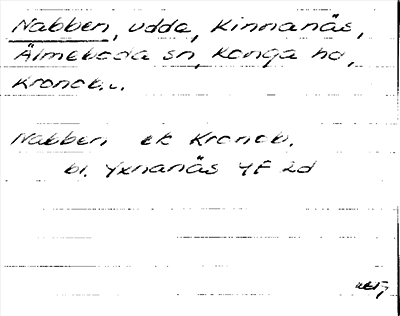 Nabben, udde, Kinnanäs,
Älmeboda sn, Konga hd,
Kronob. L.
Nabben ek Kronob.
bl. Yxnanäs 4F 2d